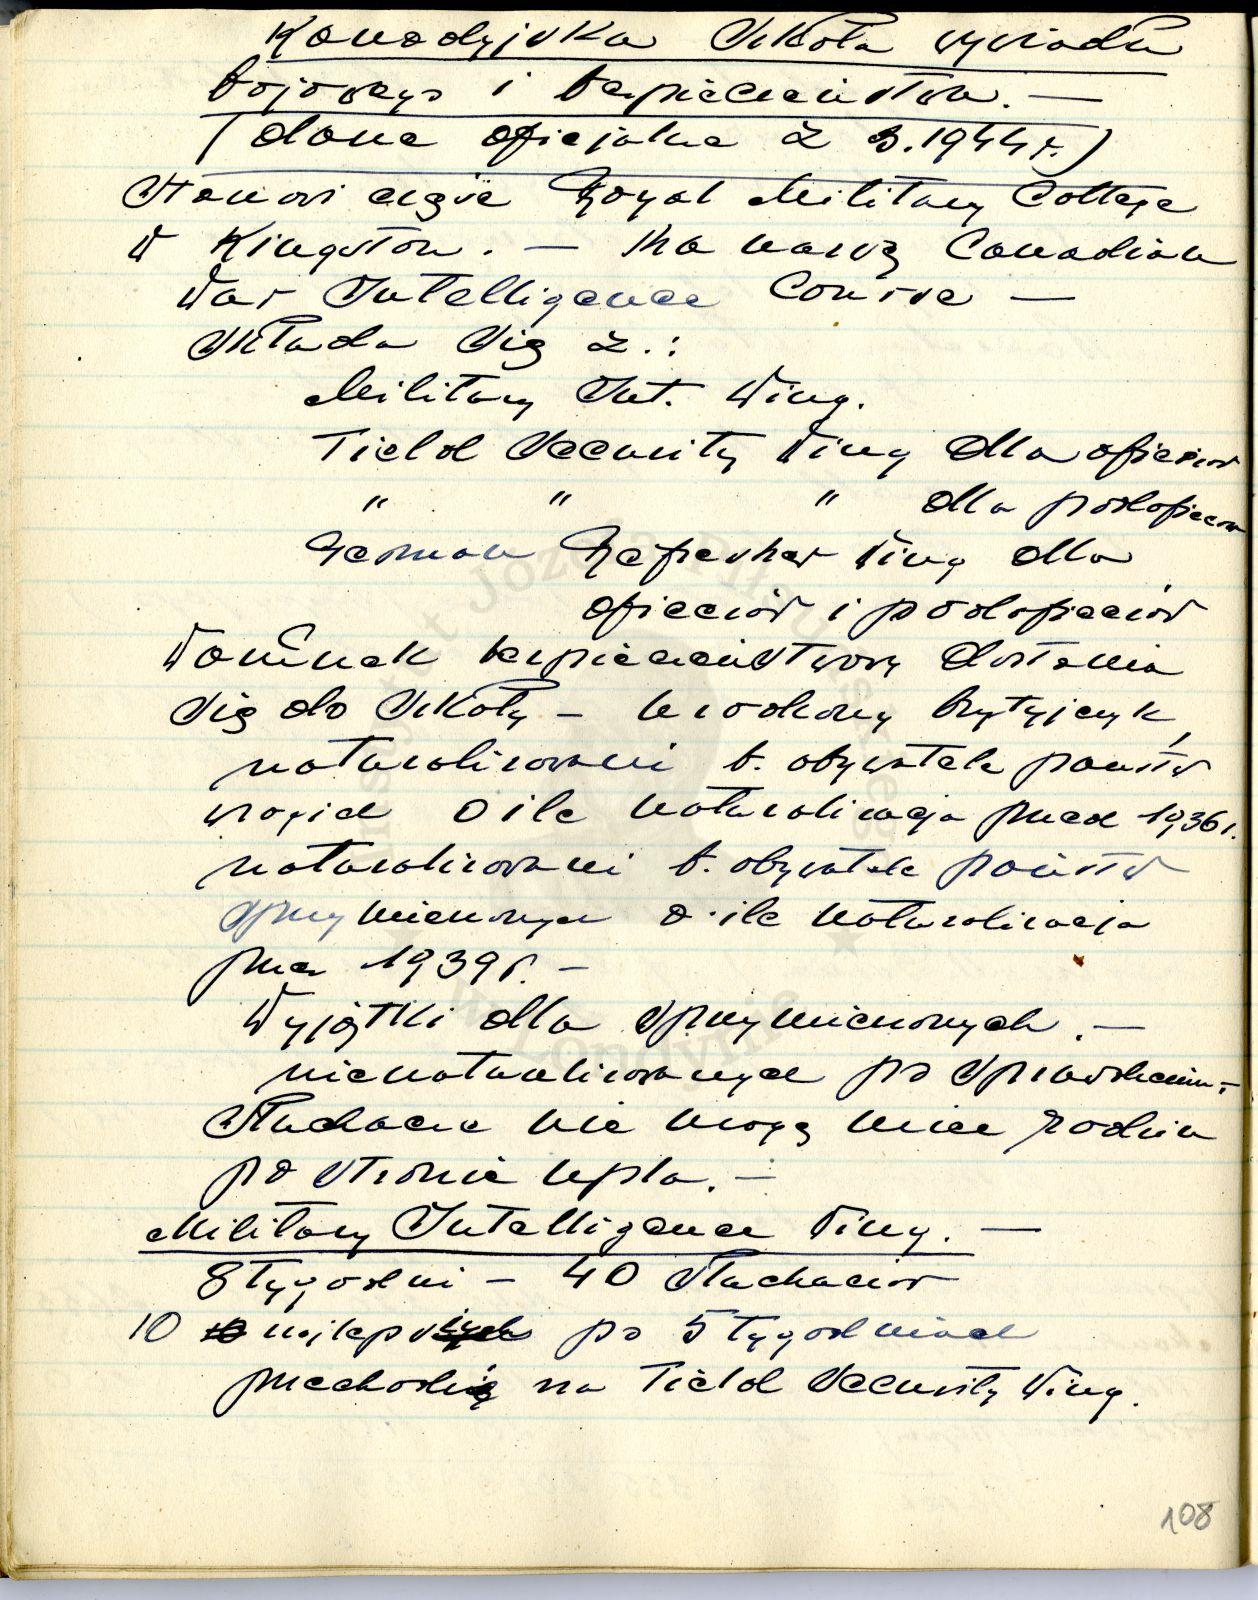 Kanadyjska Szkoła wywiadu
bojowego i bezpieczeństwa. —
(dane oficjalne z 3.1944 r.)
Stanowi część Royal Military College
w Kingston. — Ma nazwę Canadian
War Intelligence Course —
Składa się z.:
Military Int. Wing.
Field Security Wing dla oficerów
" " " dla podoficerów
German Refresher Wing dla
oficerów i podoficerów
Warunek bezpieczeństwowy dostania
się do Szkoły – urodzony brytyjczyk,
naturalizowani b. obywatele państw
wrogich o ile naturalizacja przed 1936 r.
naturalizowani b. obywatele państw
sprzymierzonych o ile naturalizacja
przed 1939 r. –
Wyjątki dla sprzymierzonych. —
nienaturalizowanych po sprawdzeniu –
Słuchacze nie mogą mieć rodzin
po stronie npla. –
Military Intelligence Wing. —
8 tygodni – 40 słuchaczów
10 najlepszych po 5 tygodniach
przechodzi na Field Security Wing.
108
Instytut Józefa Piłsudskiego
w Londynie